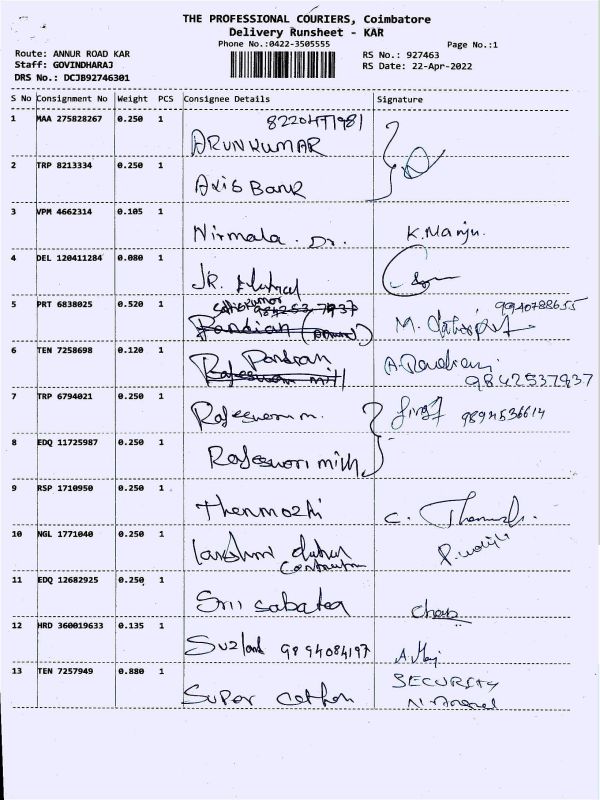 THE PROFESSIONAL COURIERS, Coimbatore
Delivery Runsheet - KAR
Phone No.:0422-3505555
Page No.:1
Route: ANNUR ROAD KAR
Staff: GOVINDHARAJ
DRS No.: DCJB92746301
RS No.: 927463
RS Date: 22-Apr-2022
S No Consignment No Weight PCS Consignee Details Signature
1 MAA 275828267 0.250 1
ARUNKUMAR
2 TRP 8213334 0.250 1
Axis Bank
3 VPM 4662314 0.105 1
Nirmala. Dr. K. Manju.
4 DEL 120411284 0.080 1
JR.
5 PRT 6838025 0.520 1
Pandian M. 9940788655
6 TEN 7258698 0.120 1
Pandian A. Pandian
9842537937
7 TRP 6794021 0.250 1
Rajeswari m. 9894536614
8 EDQ 11725987 0.250 1
Rajeswori mill
9 RSP 1710950 0.250 1
Thenmozhi C.
10 NGL 1771040 0.250 1
11 EDQ 12682925 0.250 1
Srii
12 HRD 360019633 0.135 1
9894084197
13 TEN 7257949 0.880 1
Super cotton SECURITY